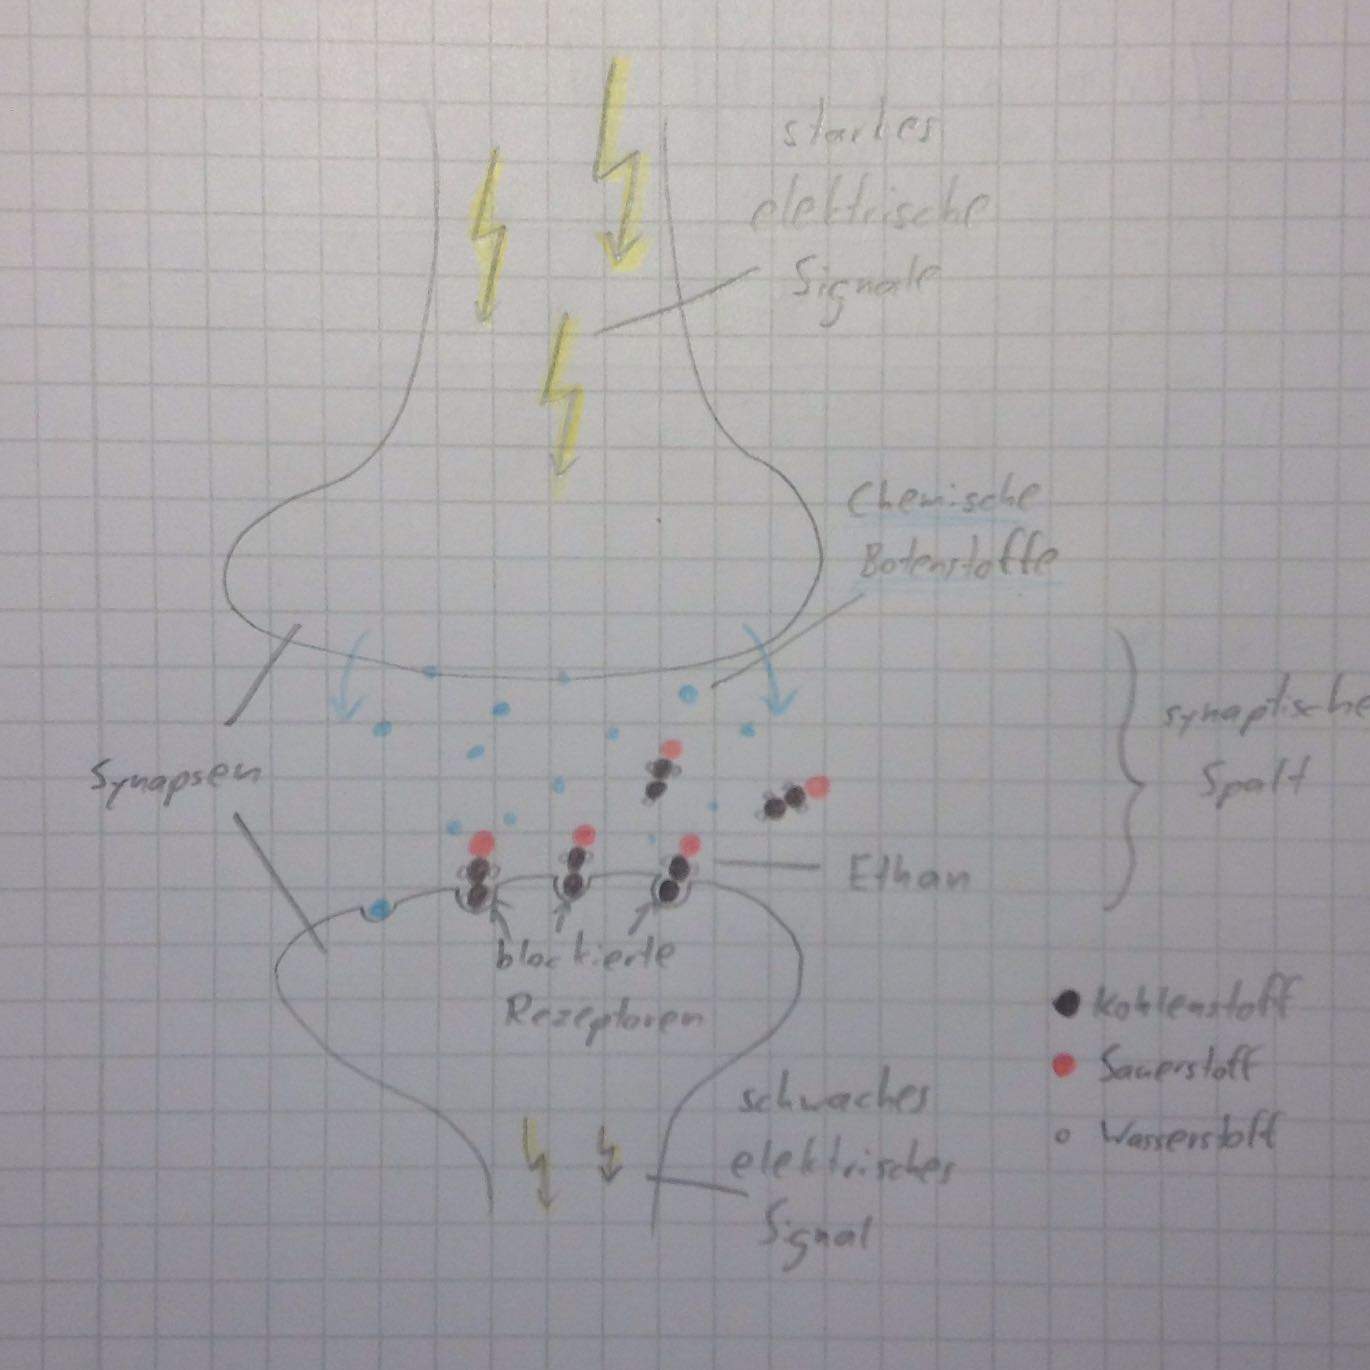 starkes
elektrische
Signale
Chemische
Botenstoffe
synaptische
Spalt
Synapsen
Ethan
blockierte
Rezeptoren
Kohlenstoff
Sauerstoff
Wasserstoff
schwaches
elektrisches
Signal